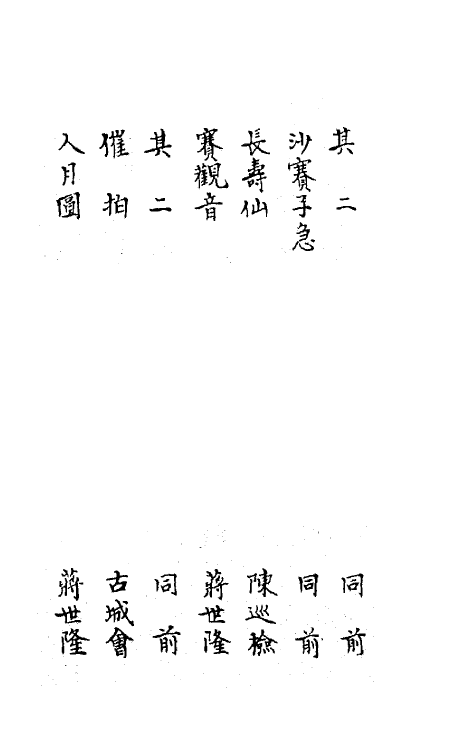 其二　同前
沙賽子急　同前
長壽仙　陳巡檢
賽觀音　蔣世隆
其二　同前
催拍　古城會
人月圓　蔣世隆